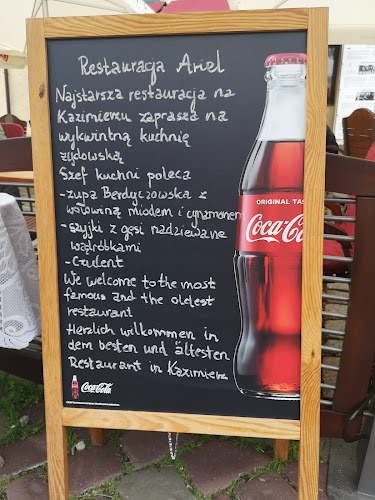 Restauracja Ariel
Najstarsza restauracja na
Kazimierzu zaprasza na
wykwintną kuchnię
żydowską
Szef kuchni poleca
- zupa Berdyczowska z
wołowiną miodem i cynamonem
- szyjki z gęsi nadziewane
wątróbkami
- Czulent
We welcome to the most
famous and the oletest
restaurant
Herzlich willkommen in
dem besten und ältesten
Restaurant in Kazimierz
ORIGINAL TAS
Coca-Co
Coca-Cola